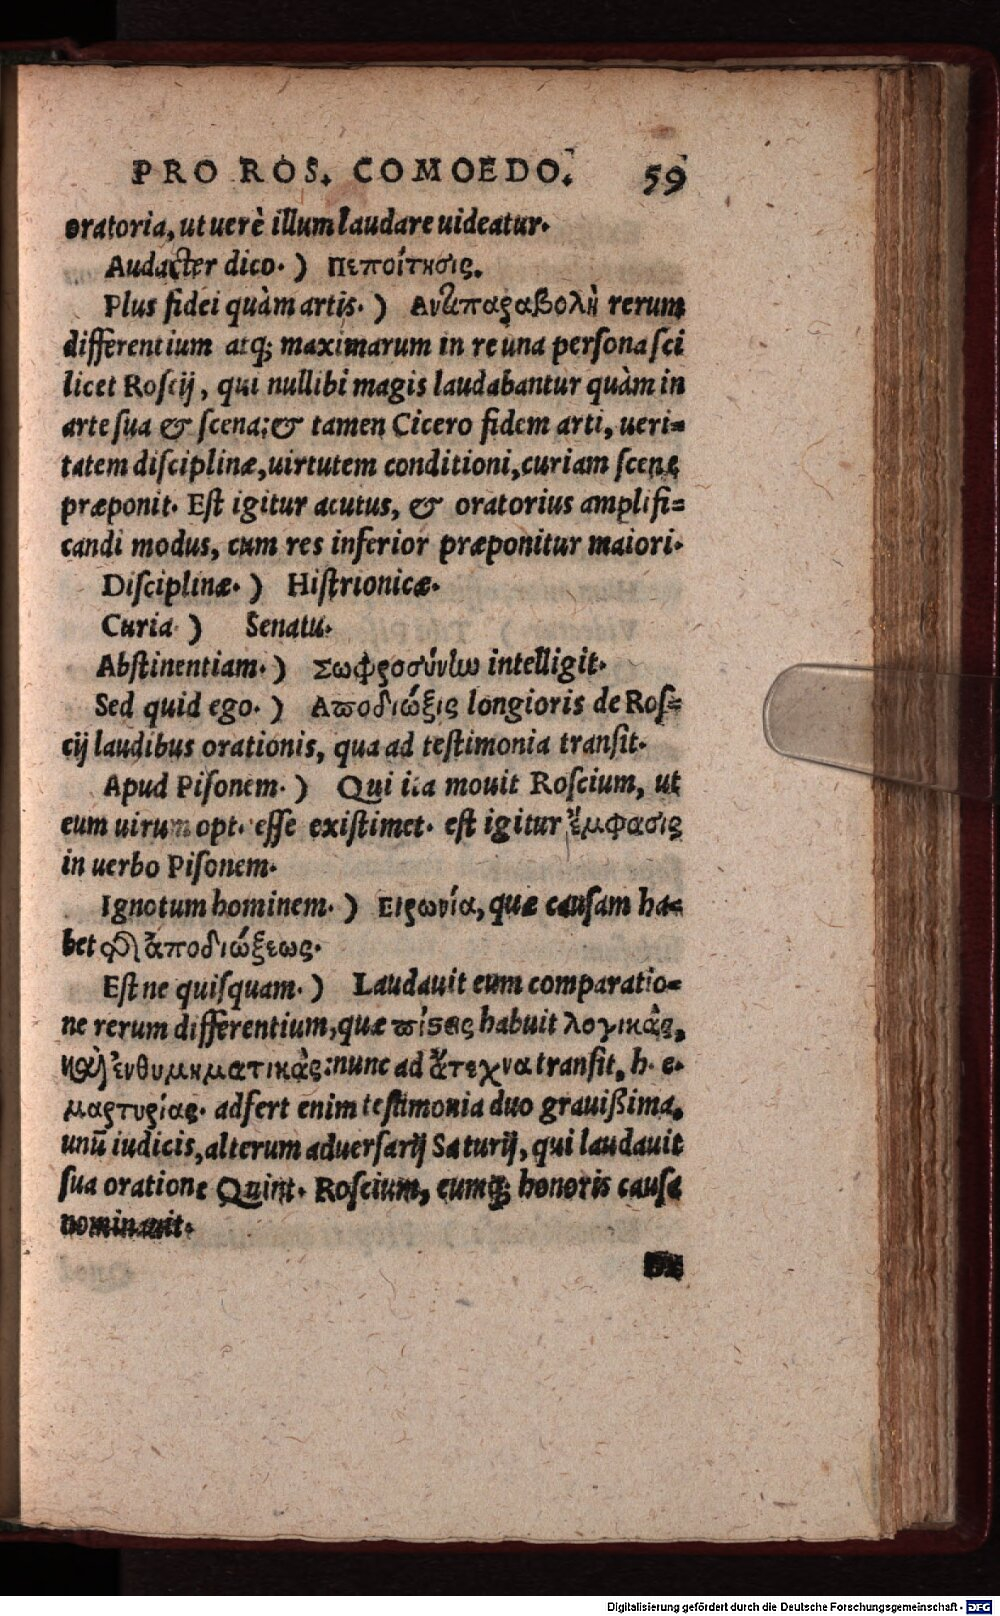 PRO ROS. COMOEDO. 59
oratoria, ut uerè illum laudare uideatur.
Audacter dico. ) Πεποίτησις.
Plus fidei quàm artis. ) Ανταπαραβολὴ rerum
differentium atq; maximarum in re una persona sci
licet Roscij, qui nullibi magis laudabantur quàm in
arte sua & scena: & tamen Cicero fidem arti, ueri=
tatem disciplinæ, uirtutem conditioni, curiam scenę
præponit. Est igitur acutus, & oratorius amplifi=
candi modus, cum res inferior præponitur maiori.
Disciplinæ. ) Histrionicæ.
Curia ) Senatu.
Abstinentiam. ) Σωφροσύνην intelligit.
Sed quid ego. ) Αποδιώξις longioris de Ros=
cij laudibus orationis, qua ad testimonia transit.
Apud Pisonem. ) Qui ita mouit Roscium, ut
eum uirum opt. esse existimet. est igitur ἔμφασις
in uerbo Pisonem.
Ignotum hominem. ) Ειρωνία, quæ causam ha=
bet ἀποδιώξεως.
Estne quisquam. ) Laudauit eum comparatio=
ne rerum differentium, quæ πίστεις habuit λογικὰς,
καὶ ἐνθυμηματικὰς: nunc ad ἄτεχνα transit, h. e.
μαρτυρίας. adfert enim testimonia duo grauißima,
unũ iudicis, alterum aduersarij Saturij, qui laudauit
sua oratione Quint. Roscium, eumq; honoris causa
nominauit.